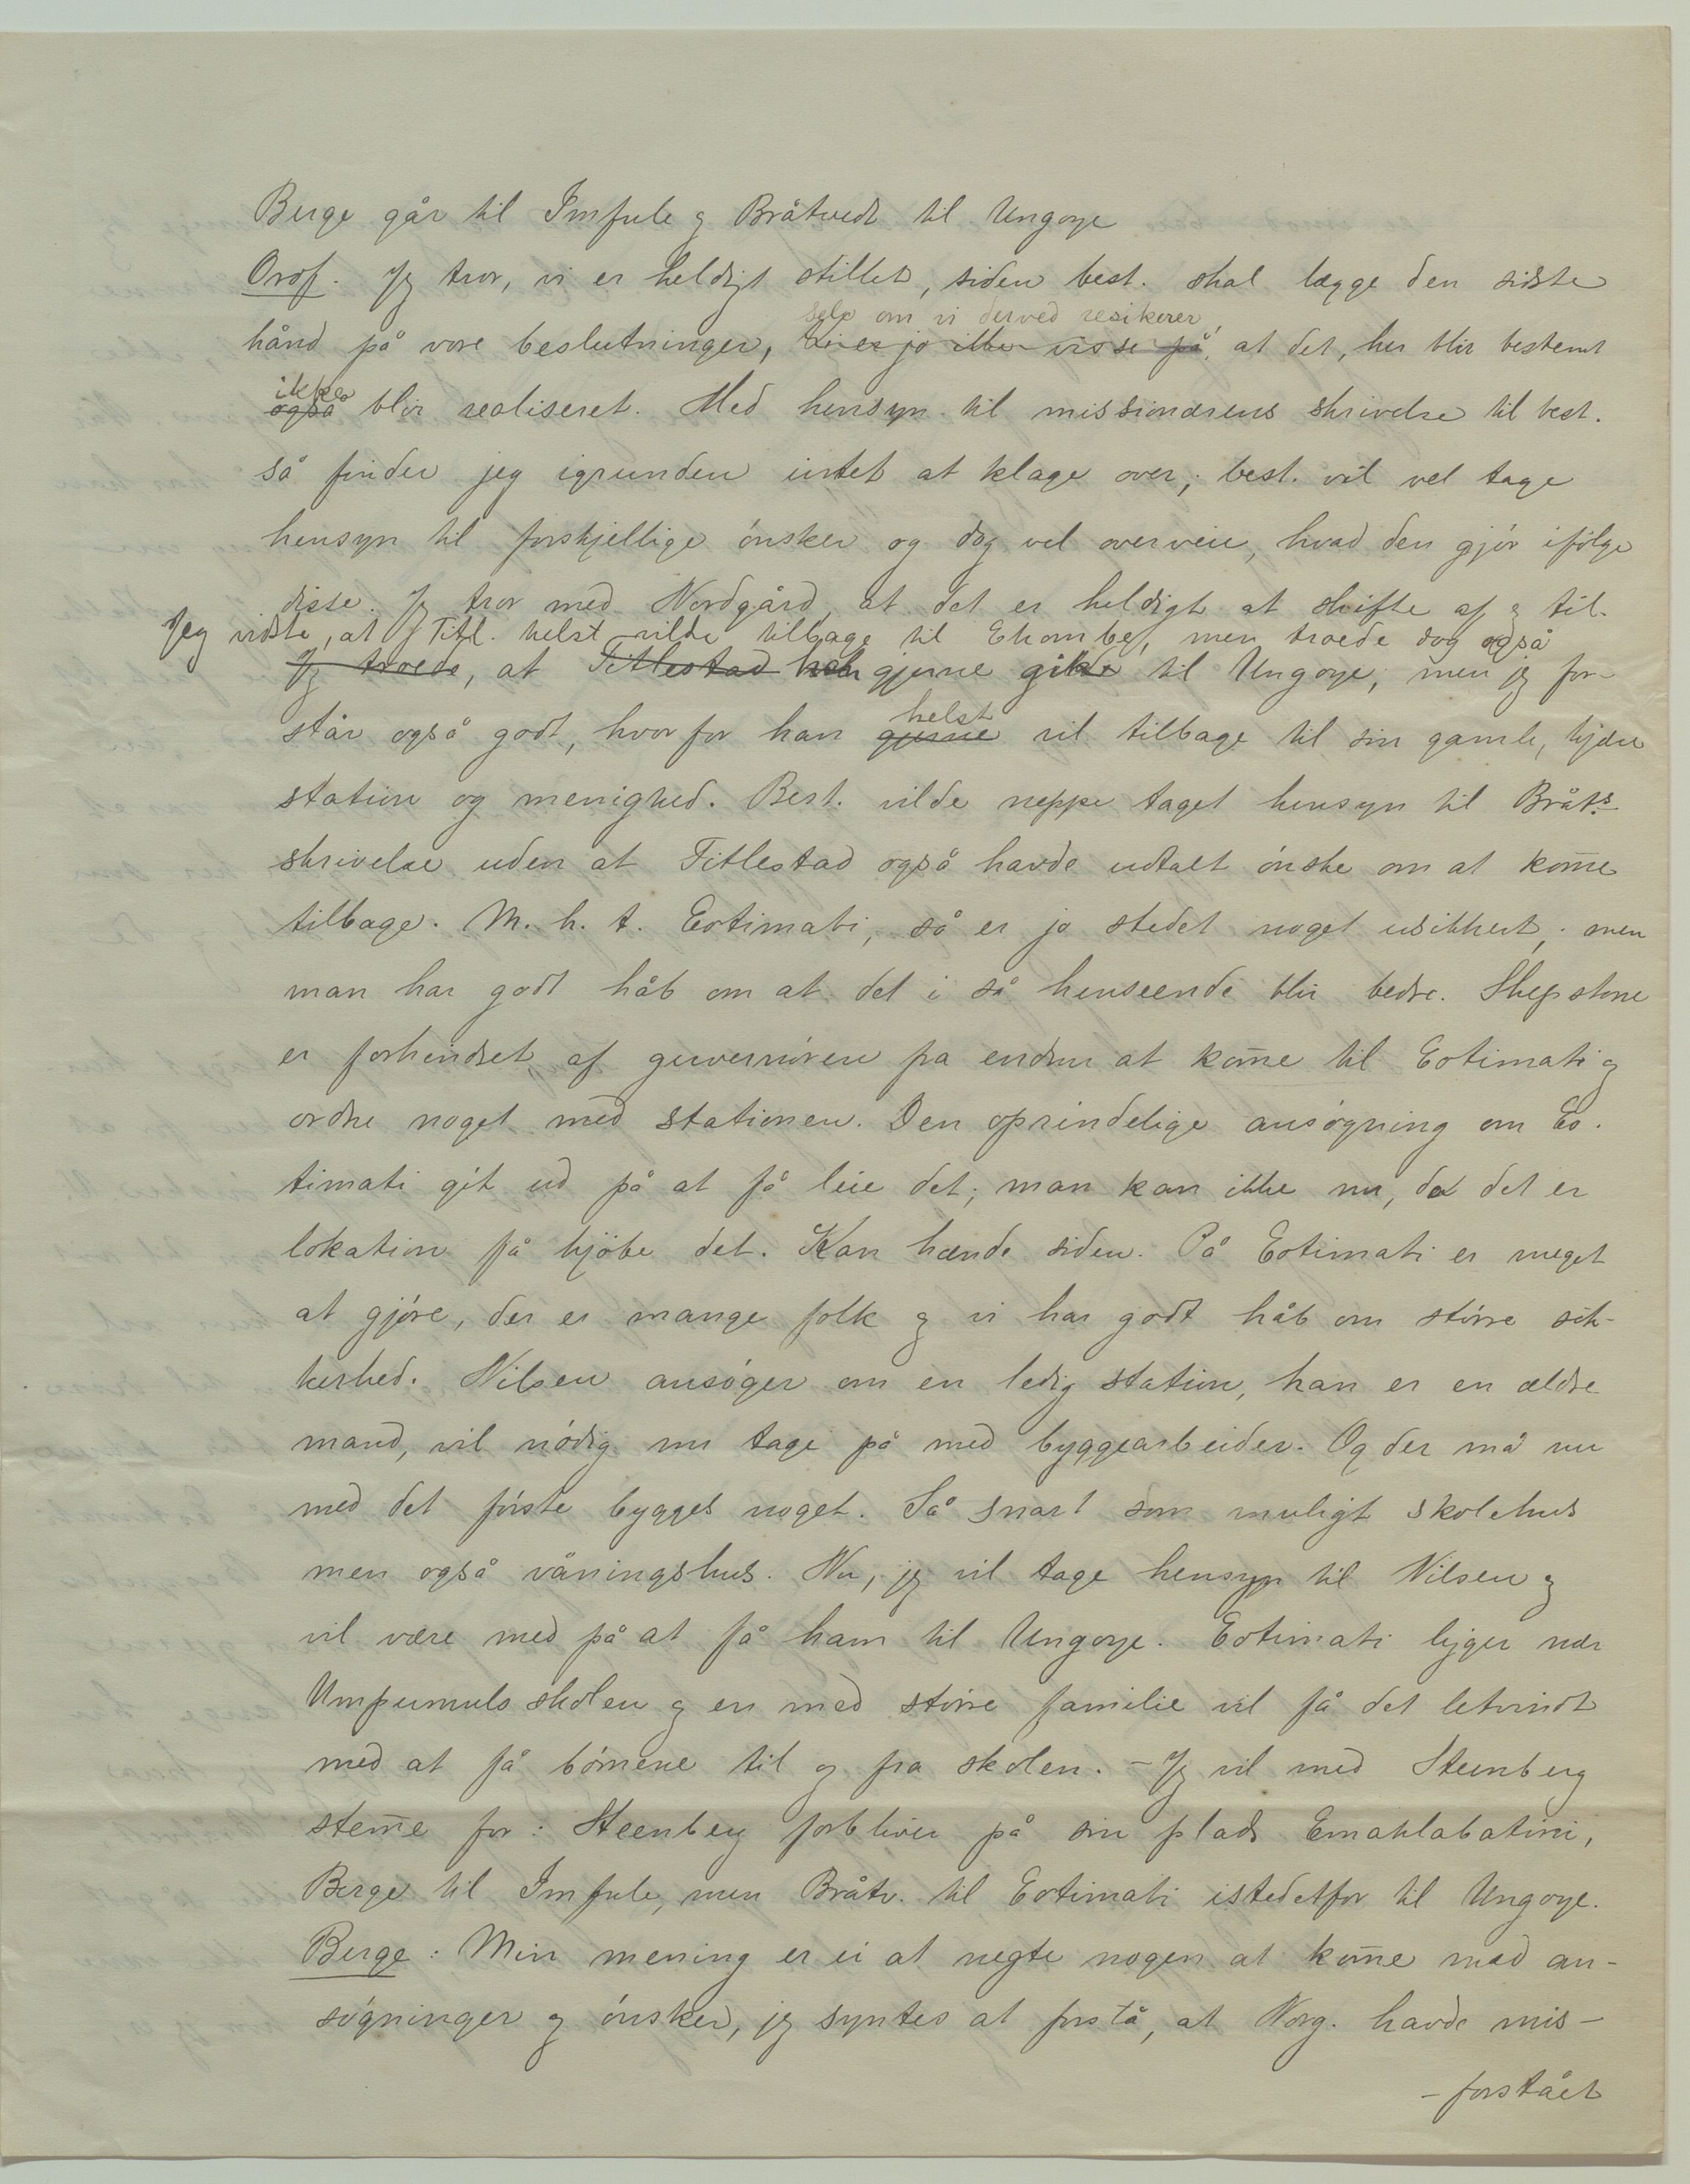 Berge går til Imfule og Bråtvedt til Ungoye
Oref. Jeg tror, vi er heldigt stillet, siden best. skal lægge den sidste
selv om vi derved resikerer,
hånd på vore beslutninger, vi er jo ikke visse på, at det, her blir bestemt
ikke
også blir realiseret. Med hensyn til missionærens skrivelse til best.
så finder jeg igrunden intet at klage over; best. vil vel tage
hensyn til forskjellige ønsker og dog vel overveie, hvad den gjør ifølge
disse. Jeg tror med Nordgård, at det er heldigt at skifte af og til.
Jeg vidste, at Titl. helst vilde tilbage til Ekombe, men troede dog også
Jeg troede, at Titlestad han gjerne gikk til Ungoye; men jeg for-
helst
står også godt, hvorfor han gjerne vil tilbage til sin gamle, kjære
station og menighed. Best. vilde neppe taget hensyn til Bråts.
skrivelse uden at Titlestad også havde udtalt ønske om at kom̅e
tilbage. M. h. t. Eotimati, så er jo stedet noget usikkert; men
man har godt håb om at det i så henseende blir bedre. Shepstone
er forhindret af guvernøren fra endnu at kom̅e til Eotimati og
ordne noget med stationen. Den oprindelige ansøgning om Eo-
timati gik ud på at få leie det; man kan ikke nu, da det er
lokation få kjøbe det. Kan hænde siden. På Eotimati er meget
at gjøre, der er mange folk og vi har godt håb om større sik-
kerhed. Nilsen ansøger om en ledig station, han er en ældre
mand, vil nødig nu tage på med byggearbeider. Og der må nu
med det første bygges noget. Så snart som muligt skolehus
men også våningshus. Nu, jeg vil tage hensyn til Nilsen og
vil være med på at få ham til Ungoye. Eotimati ligger nær
Umpumuloskolen og en med større familie vil få det letvindt
med at få børnene til og fra skolen. – Jeg vil med Steenberg
stem̅e for: Steenberg forbliver på sin plads Emahlabatini,
Berge til Imfule, men Bråtv. til Eotimati istedetfor til Ungoye.
Berge: Min mening er ei at negte nogen at kom̅e med an-
søgninger og ønsker, jeg syntes at forstå, at Norg. havde mis-
-forstået